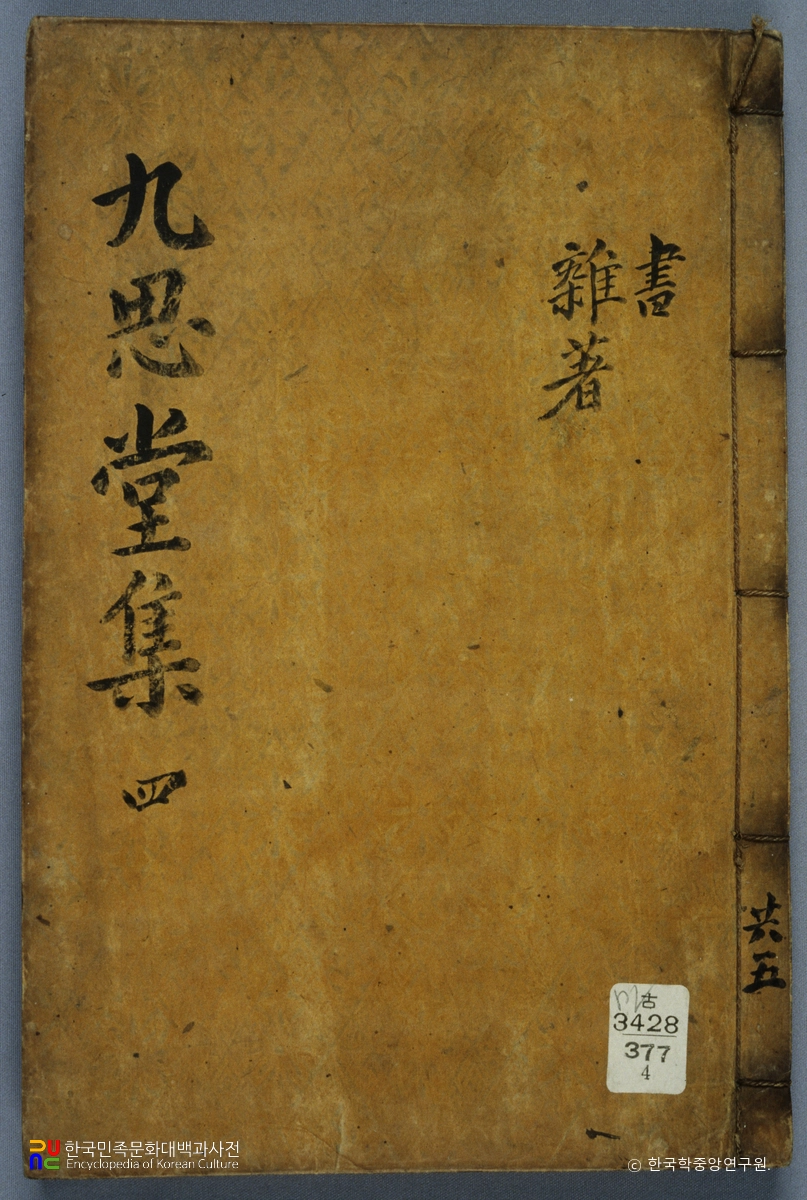 書
雜著
九思堂集 四
共五
古
3428
377
4
한국민족문화대백과사전
Encyclopedia of Korean Culture
© 한국학중앙연구원.